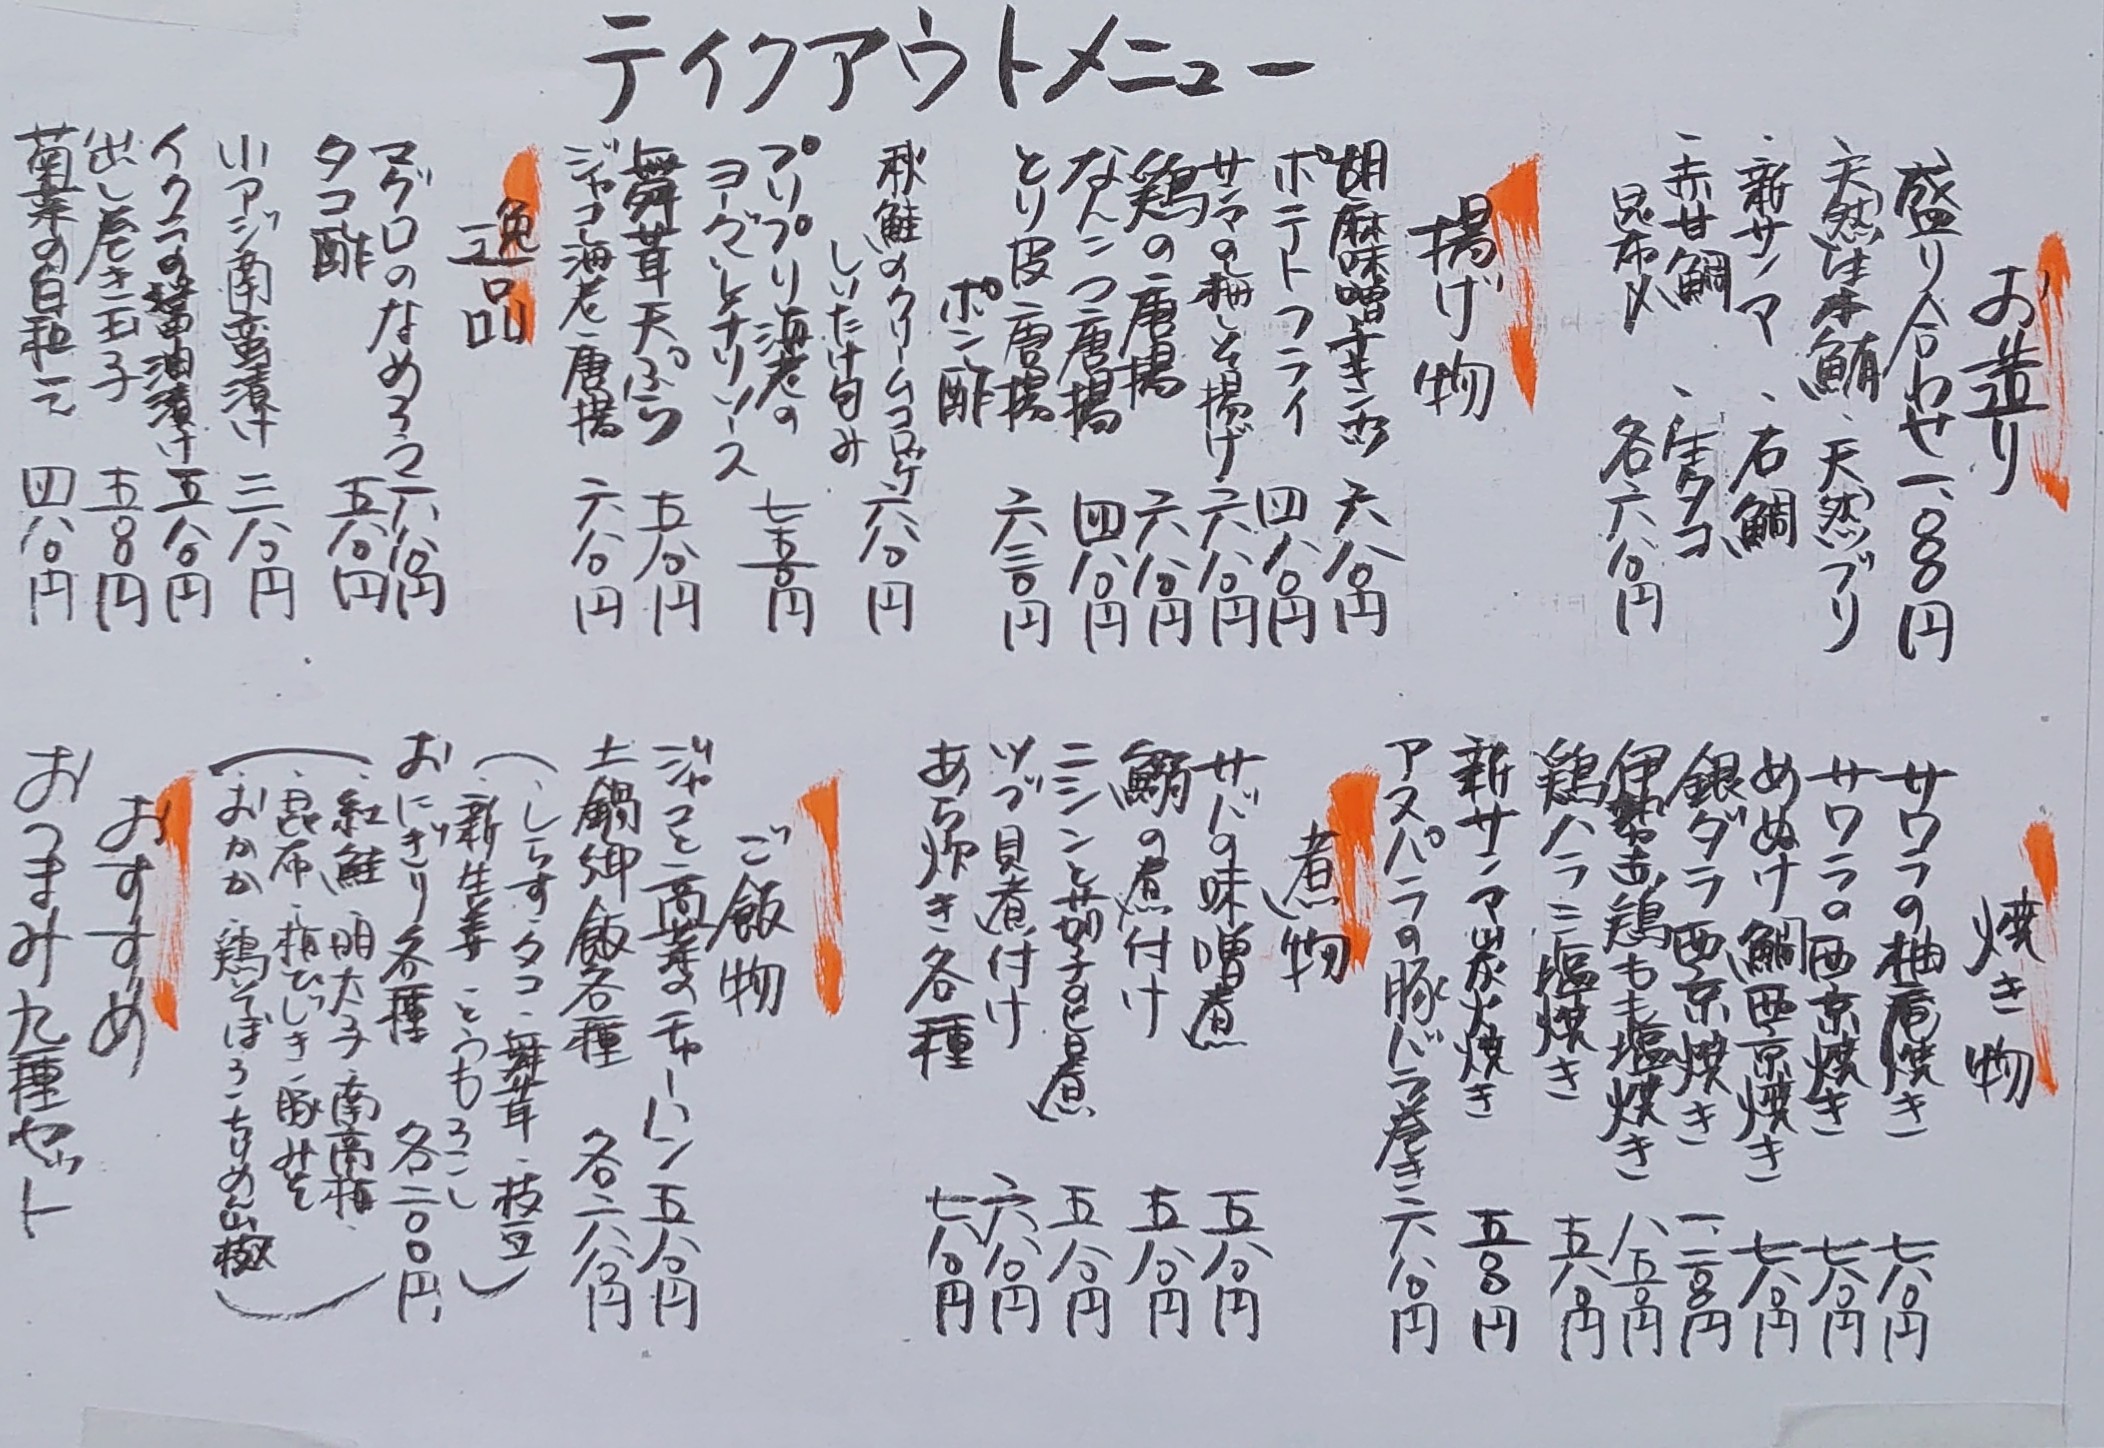 テイクアウトメニュー
お造り
盛り合わせ 一、八〇〇円
、天然生本鮪 、天然ブリ
、新サンマ 、石鯛
、赤甘鯛 、生タコ
昆布〆 各六八〇円
揚げ物
胡麻味噌チキン 六八〇円
ポテトフライ 四八〇円
サンマの梅しそ揚げ 六八〇円
鶏の唐揚 六八〇円
なんこつ唐揚 四八〇円
とり皮唐揚 六三〇円
ポン酢
秋鮭のクリームコロッケ 六八〇円
しいたけ旬み
プリプリ海老の 七五〇円
ヨーグルトチリソース
舞茸天ぷら 五八〇円
ジャコと海老唐揚 六八〇円
逸品
マグロのなめろう 六八〇円
タコ酢 五八〇円
小アジ南蛮漬け 三八〇円
イクラの醤油漬け 五八〇円
出し巻き玉子 五五〇円
菊菜の白和え 四八〇円
焼き物
サワラの柚庵焼き 七八〇円
サワラの西京焼き 七八〇円
めぬけ鯛西京焼き 七八〇円
銀ダラ西京焼き 一、二〇〇円
伊勢赤鶏もも塩焼き 八五〇円
鶏ハラミ塩焼き 五八〇円
新サンマ炭火焼き 五五〇円
アスパラの豚バラ巻き 六八〇円
煮物
サバの味噌煮 五八〇円
鰯の煮付け 五八〇円
ニシンと茄子の旨煮 五八〇円
ツブ貝煮付け 六八〇円
あら炊き各種 七八〇円
ご飯物
ジャコと高菜のチャーハン 五八〇円
土鍋御飯各種 各二六八〇円
(、しらすタコ、舞茸、枝豆
、新生姜 とうもろこし)
おにぎり各種 各二〇〇円
(、紅鮭 明太子、南高梅、
、昆布、梅ひじき、豚みそ
、おかか 鶏そぼろ、ちりめん山椒)
おすすめ
おつまみ九種セット